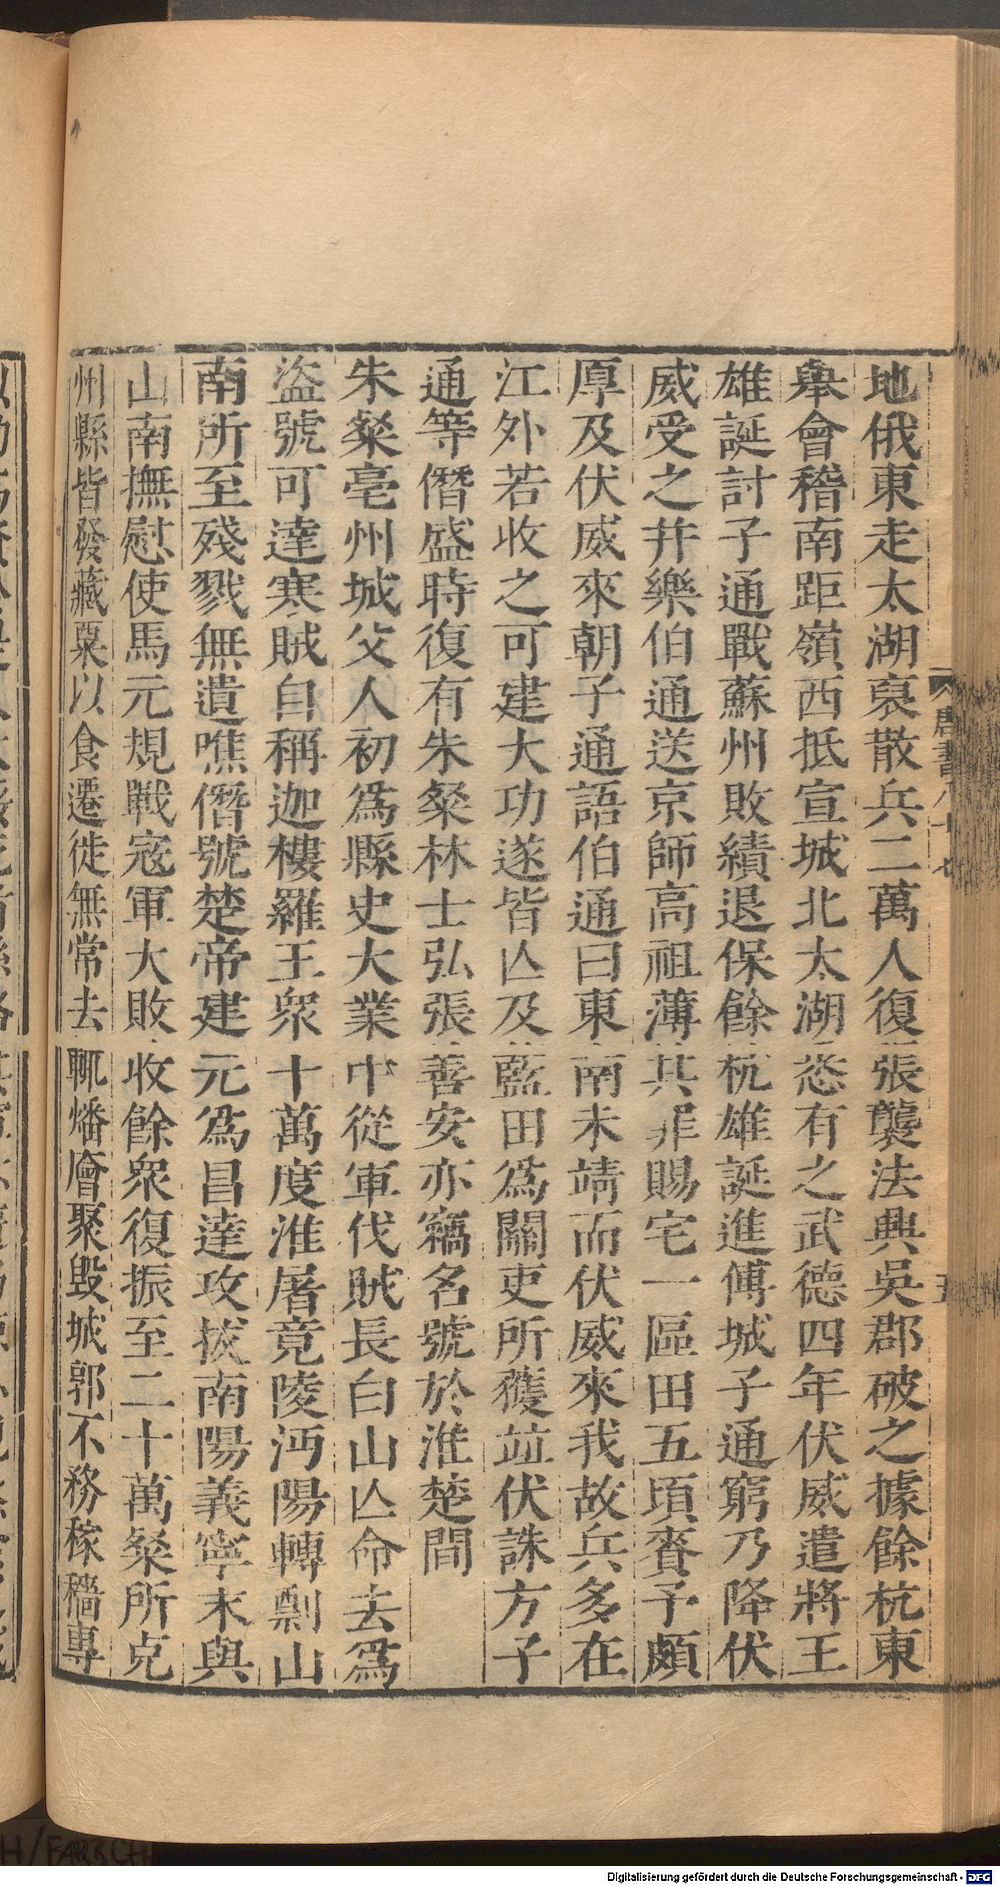 地俄東走太湖裒散兵二萬人復張襲法興吳郡破之據餘杭東
舉會稽南距嶺西抵宣城北太湖悉有之武德四年伏威遣將王
雄誕討子通戰蘇州敗績退保餘杭雄誕進傅城子通窮乃降伏
威受之井樂伯通送京師高祖薄其罪賜宅一區田五頃賚予頗
厚及伏威來朝子通語伯通曰東南未靖而伏威來我故兵多在
江外若收之可建大功遂皆亾及藍田爲關吏所獲竝伏誅方子
通等僭盛時復有朱粲林士弘張善安亦竊名號於淮楚間
朱粲亳州城父人初爲縣史大業中從軍伐賊長白山亾命去爲
盜號可達寒賊自稱迦樓羅王衆十萬度淮屠竟陵沔陽轉剽山
南所至殘戮無遺噍僭號楚帝建元爲昌達攻拔南陽義寧末與
山南撫慰使馬元規戰寇軍大敗收餘衆復振至二十萬粲所克
州縣皆發藏粟以食遷徙無常去輒燔廥聚毀城郭不務稼穡專
唐書八十七
五
Digitalisierung gefördert durch die Deutsche Forschungsgemeinschaft - DFG